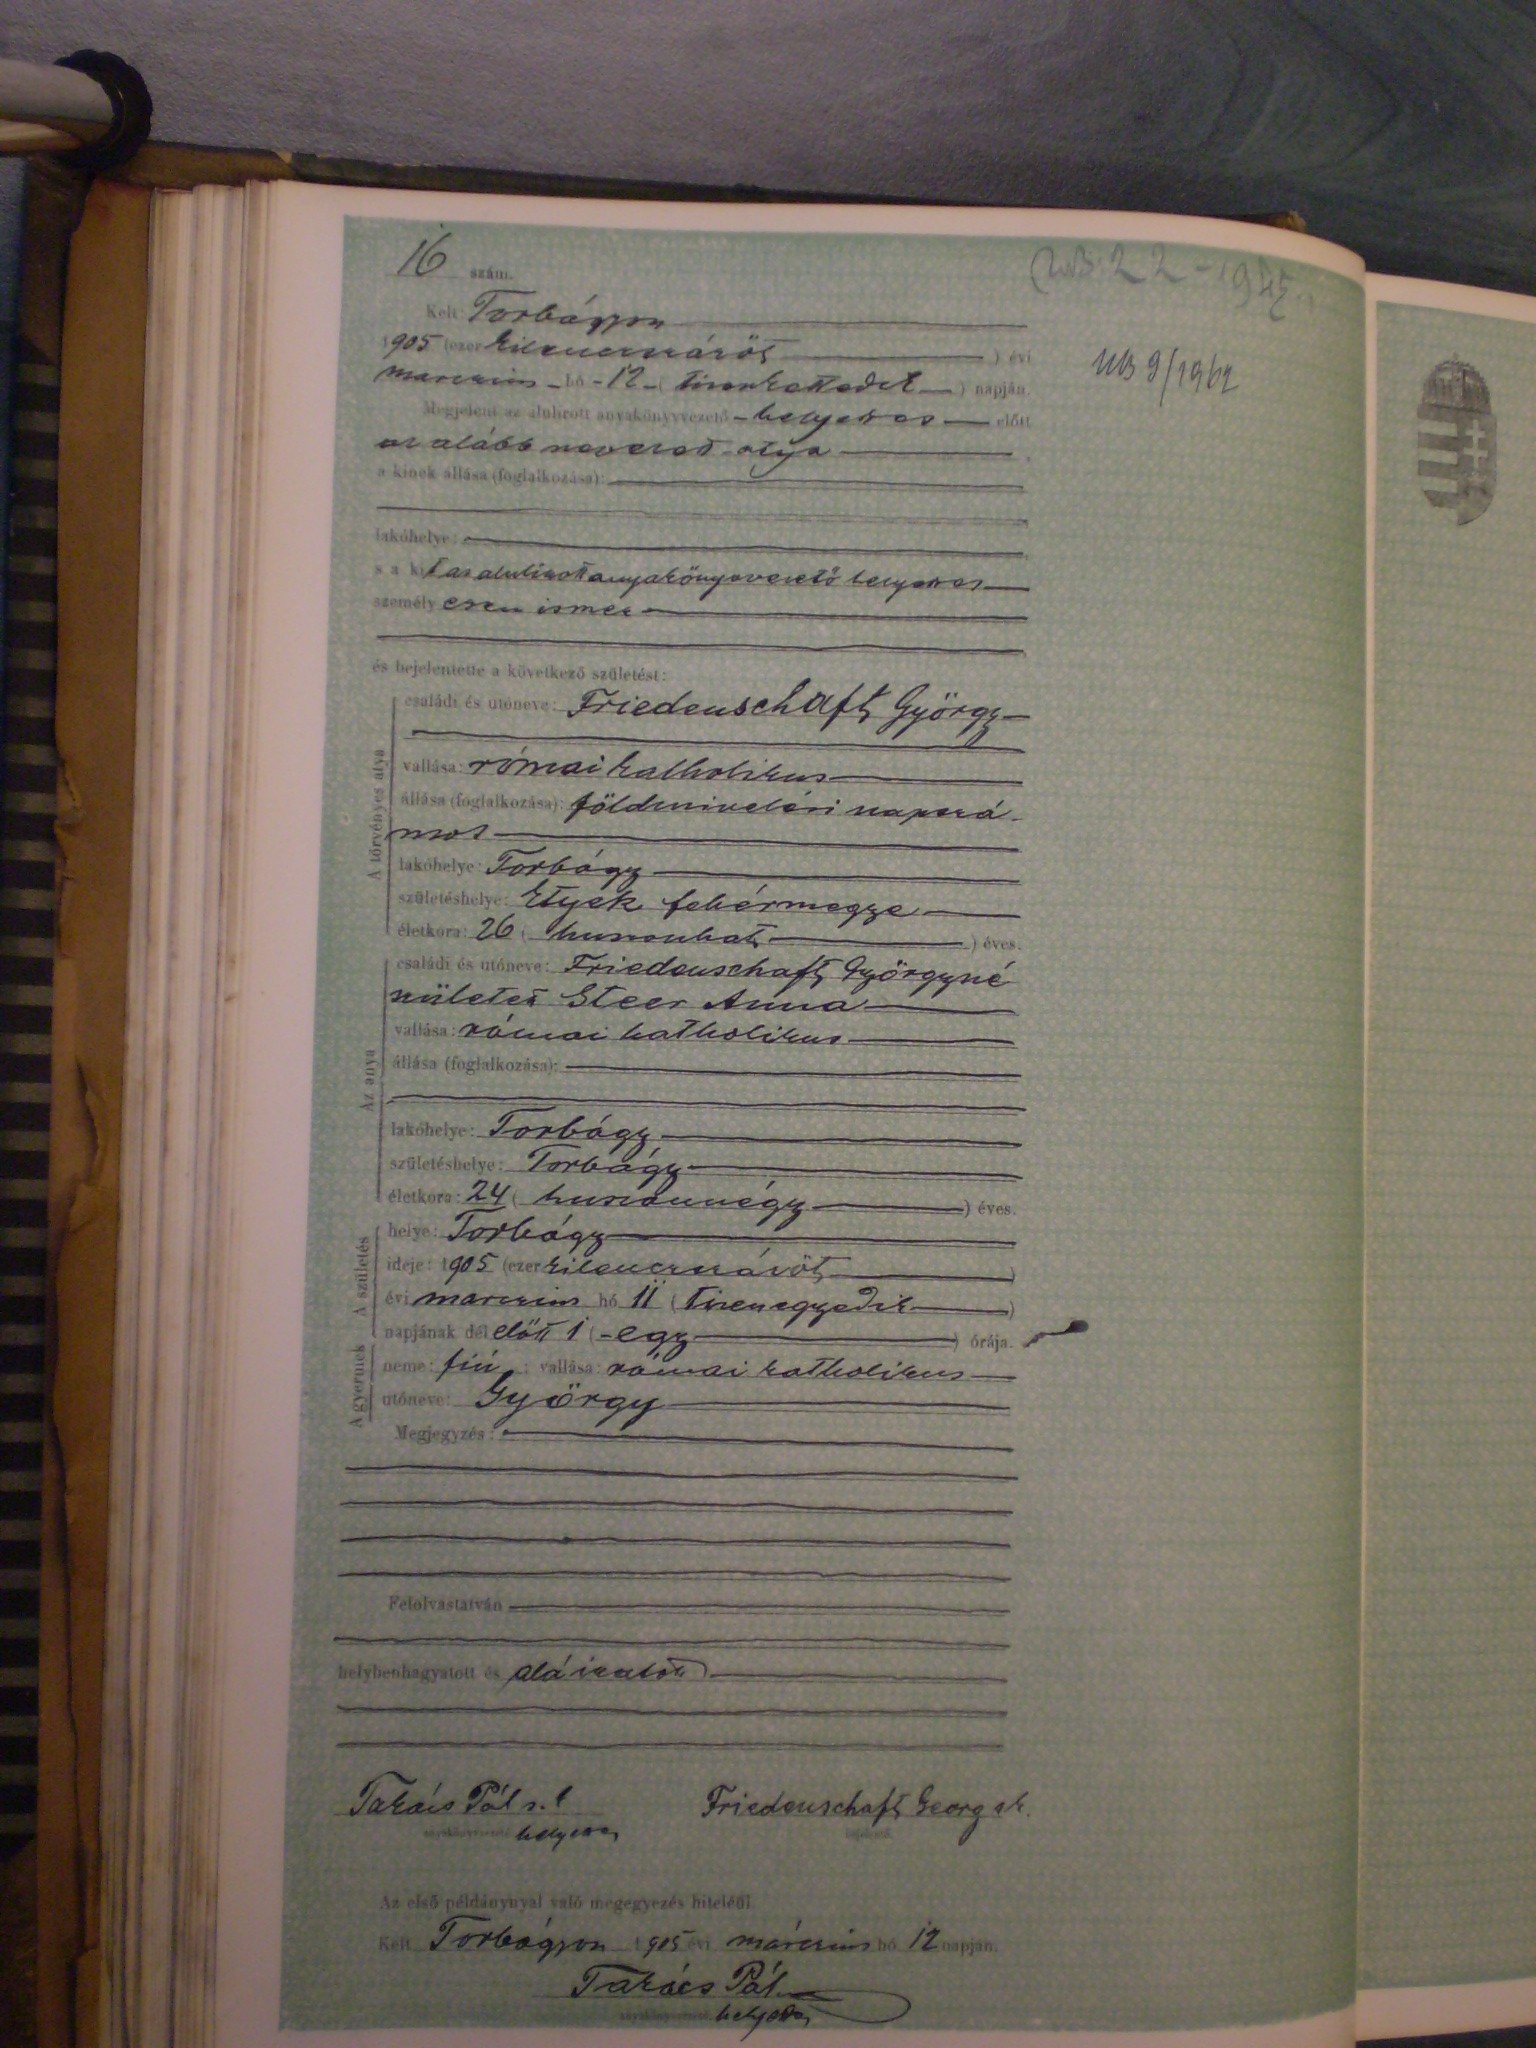 16 szám.
Kelt Torbágyon
1905 (ezer kilenczszázöt ) évi
marczius hó 12 ( tizenkettedik ) napján.
Megjelent az alulirott anyakönyvvezető - helyettes előtt
az alább nevezett atya
a kinek állása (foglalkozása):
lakóhelye:
s a kit az alulirott anyakönyvvezető helyettes
személyesen ismer
és bejelentette a következő születést:
A törvényes atya
családi és utóneve: Friedenschaft György
vallása: római katholikus
állása (foglalkozása): földmivelési napszá-
mos
lakóhelye: Torbágy
születéshelye: Etyek fehérmegye
életkora: 26 ( huszonhat ) éves.
Az anya
családi és utóneve: Friedenschaft Györgyné
született Steer Anna
vallása: római katholikus
állása (foglalkozása):
lakóhelye: Torbágy
születéshelye: Torbágy
életkora: 24 ( huszonnégy ) éves.
A születés
helye: Torbágy
ideje: 1905 (ezer kilenczszázöt )
évi marczius hó 11 ( tizenegyedik )
napjának dél előtt 1 ( - egy ) órája.
A gyermek
neme: fiú ; vallása: római katholikus
utóneve: György
Megjegyzés:
Felolvastatván
helybenhagyatott és aláiratott
Takács Pál s. k
helyettes
Friedenschaft Georg sk.
Az első példánynyal való megegyezés hiteléül
Kelt Torbágyon 1905 évi márczius hó 12 napján.
Takács Pál
helyettes
22 - 1945
UB 9/1962